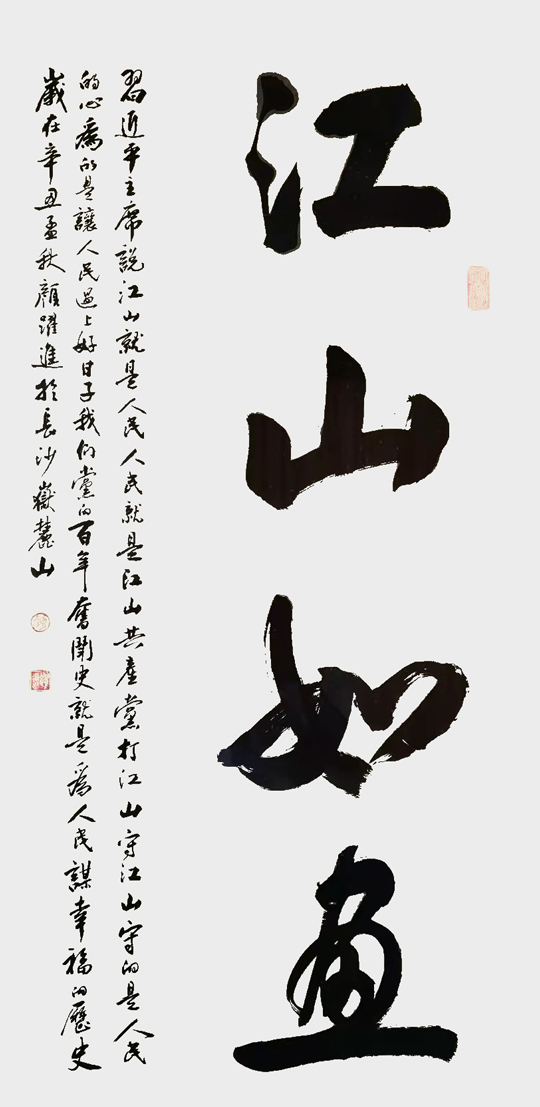 江山如画
習近平主席説江山就是人民人民就是江山共產黨打江山守江山守的是人民
的心為的是讓人民過上好日子我們黨的百年奮鬭史就是為人民謀幸福的歷史
歲在辛丑孟秋顏躍進於長沙嶽麓山